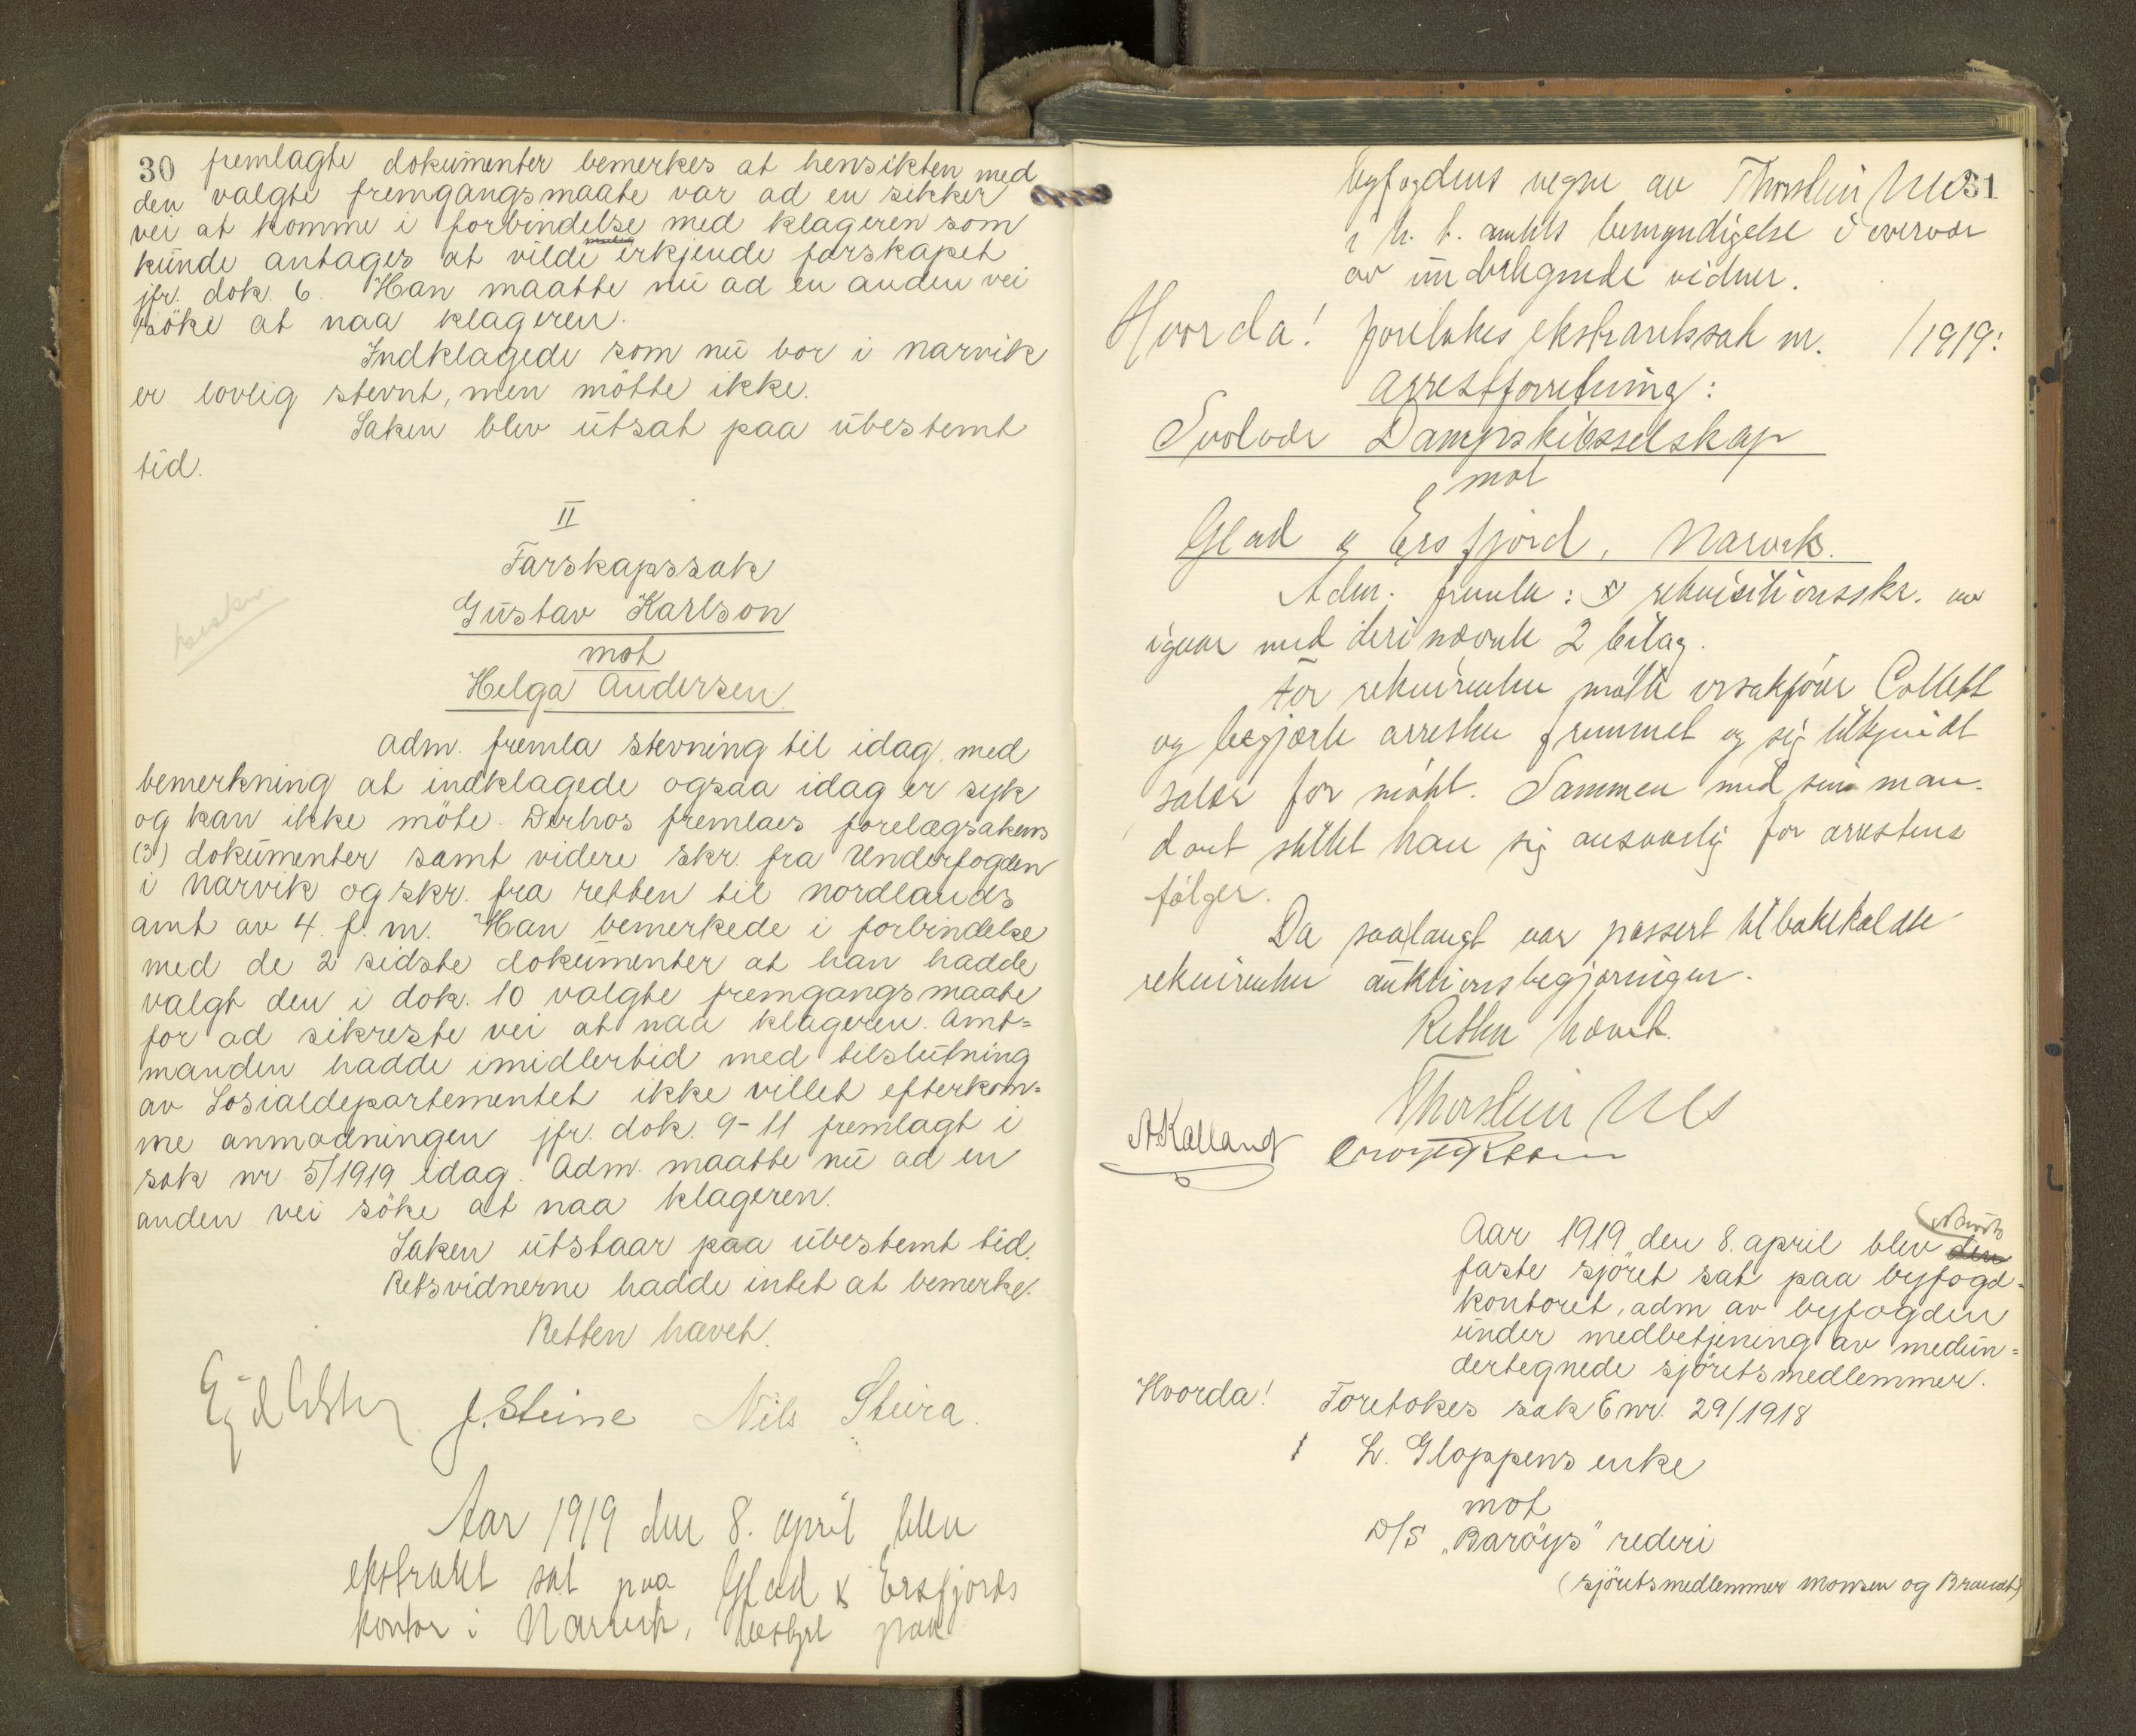 30 fremlagte dokumenter bemerkes at hensikten med
den valgte fremgangsmaate var ad en sikker
vei at komme i forbindelse med klageren som
kunde antages at vilde erkjende farskapet
jfr. dok. 6. Han maatte nu ad en anden vei
söke at naa klageren.
Indklagede som nu bor i Narvik
er lovlig stevnt, men mötte ikke.
Saken blev utsat paa ubestemt
tid.
II
Farskapssak
Gustav Karlson
mot
Helga Andersen.
Adm. fremla stevning til idag, med
bemerkning at indklagede ogsaa idag er syk
og kan ikke möte. Derhos fremlaes forelægsakens
(3) dokumenter samt videre skr. fra Underfogden
i Narvik og skr. fra retten til Nordlands
amt av 4. f. m. Han bemerkede i forbindelse
med de 2 sidste dokumenter at han hadde
valgt den i dok. 10 valgte fremgangsmaate
for ad sikreste vei at naa klageren. Amt=
manden hadde imidlertid med tilslutning
av Sosialdepartementet ikke villet efterkom=
me anmodningen jfr. dok. 9-11 fremlagt i
sak nr. 5/1919 idag. Adm. maatte nu ad en
anden vei söke at naa klageren.
Saken utstaar paa ubestemt tid.
Retsvidnerne hadde intet at bemerke.
Retten hævet.
J. Steine Nils Steira.
Aar 1919 den 8. april blev
ekstraret sat paa Glad & Ersfjords
kontor i Narvik, bestyrt paa
byfogdens vegne av Thorstein 31
i h. t. amtets bemyndigelse i overvær
av undertegnede vidner.
Hvorda! foretokes ekstraretssak nr. /1919:
Arrestforretning:
Svolvær Dampskibsselskap
mot
Glad & Ersfjord, Narvik.
Adm. fremla: rekvisitionsskr. av
igaar med deri nævnte 2 bilag.
For rekvirenten mötte orsakförer Collett
og begjærte arresten fremmet og sig tilkjendt
salær for mötet. Sammen med sin man-
dant stillet han sig ansvarlig for arrestens
fölger.
Da saalangt var passert tilbakekaldte
rekvirenten auktionsbegjæringen.
Retten hævet.
Thorstein
A Kalland
Aar 1919 den 8. april blev den Narviks
faste sjöret sat paa byfogd=
kontoret, adm av byfogden
under medbetjening av medun=
dertegnede sjöretsmedlemmer.
Hvorda! Foretokes sak E nr. 29/1918
1 L. Gloppens enke
mot
D/S "Baröys" rederi
(sjöretsmedlemmer Monsen og Brandt)